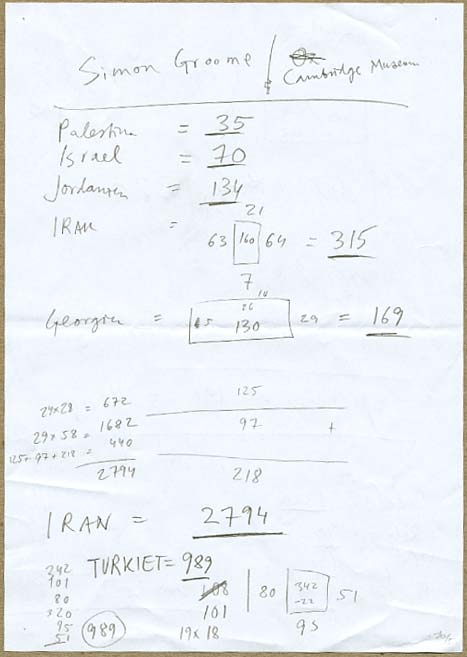 Simon Groome / Cambridge Museum
Palestina = 35
Israel = 70
Jordanien = 134
IRAN =
21
63 160 64 = 315
7
Georgien =
10
26
5 130 29 = 169
125
24x28 = 672
29x58 = 1682
97 +
125+97+218 = 440
2794
218
IRAN = 2794
TURKIET = 989
342
101
80
320
95
51
989
108
101
19x18
80
342
-22
51
95